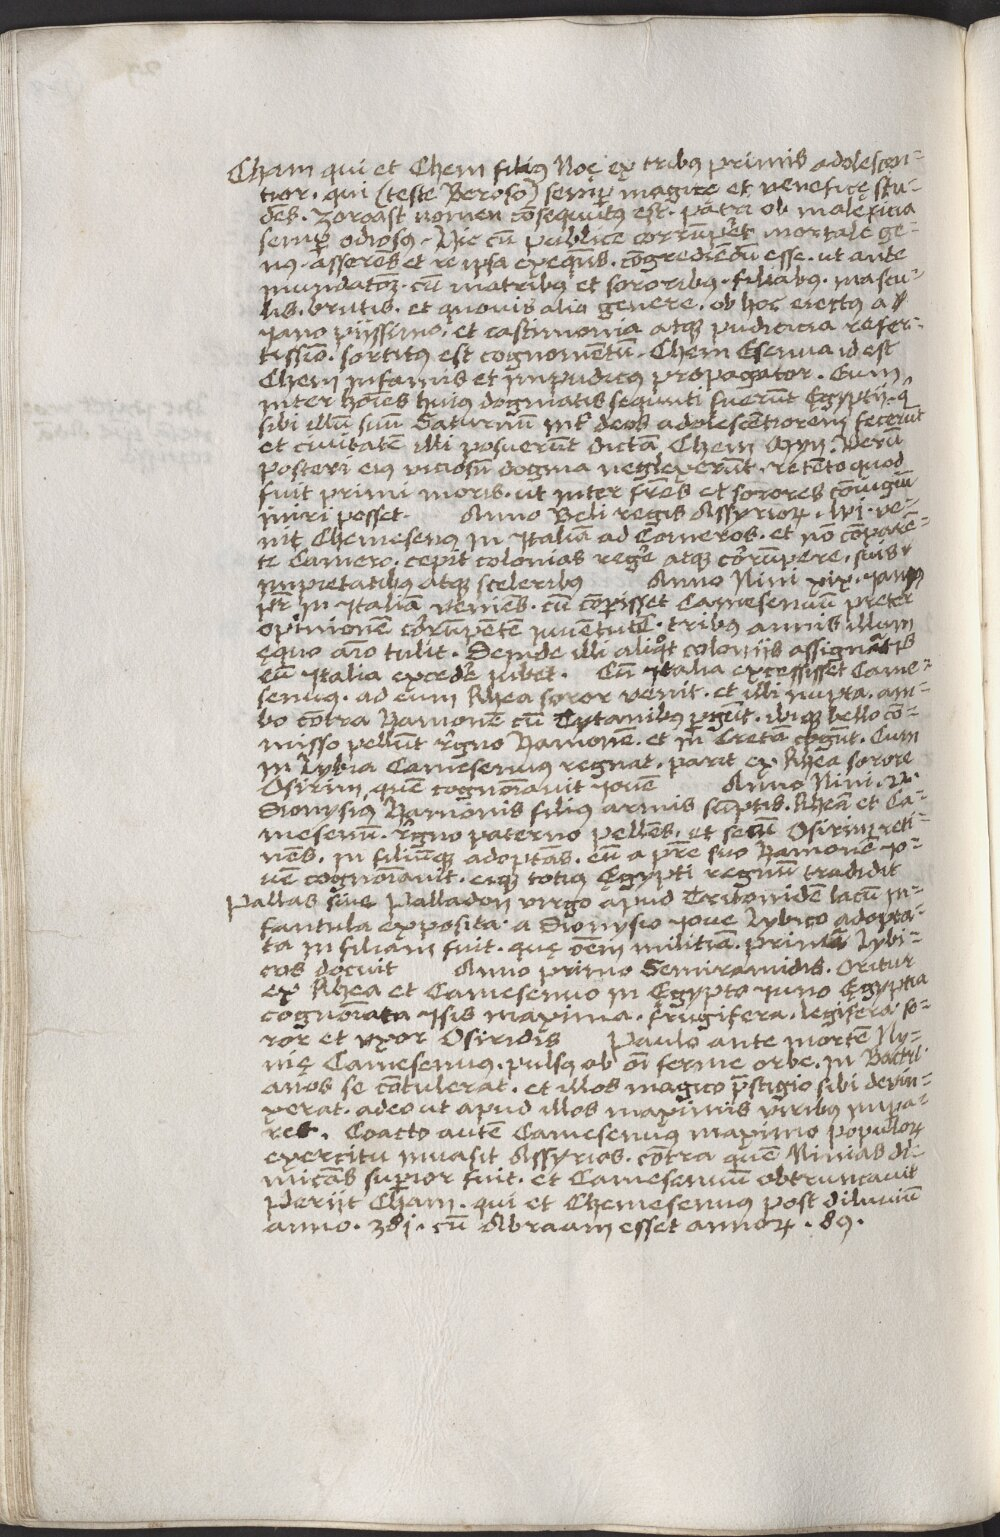 Cham qui et Chem filiꝰ Noę ex tribꝰ primis adolescen-
tior. qui (teste Beroso) semꝑ magicę et veneficę stu-
dēs. Zoroast nomen cōsequutꝰ est. patri ob maleficia
semꝑ odiosꝰ. Hic cū publice corrūpẽt mortale ge-
nꝰ. asserēs et re ipsa exequēs. cōgrediendū esse. ut ante
inundatōꝫ. cū matribus et sororibꝰ. filiabꝰ. mascu-
lis. brutis. et quovis alio genere. ob hoc eiectꝰ a
Jano piissimo. et castimonia atqꝫ pudicicia refer-
tissīo. sortitꝰ est cognomentū. Chem Esenua id est
Chem infamis et impudicꝰ propagator. Eum
inter hoīes huiꝰ dogmatis sequuti fuerūt Egyptij. q
sibi illū suū Saturnū int̃ deos adolescentiorem fecerūt
et civitatem illi posuerunt dictā Chem Myn. Verū
posteri eius viciosū dogma neglexerūt. retēto quod
fuit primi moris. ut inter fr̄es et sorores cōiugiū
iniri posset. Anno Beli regis Assyrioꝝ. lvi. ve-
nit Chemesenꝰ in Italiā ad Comeros. et nō cōparē-
te Camero. cepit colonias reger̃ atqꝫ corrūpere. suis
impietatibus atqꝫ sceleribꝰ Anno Nini xix. Janꝰ
pr̄ in Italiā veniēs. cū cōperisset Camesenuū preter
opinionē corrūpentē iuventutē. tribꝰ annis illum
ęquo aīo tulit. Deinde illi aliqͦt coloniis assignatis
eū Italia exceder̃ iubet. Cū Italia excessisset Came-
senuꝰ. ad eum Rhea soror venit. et illi nupta. am-
bo cōtra Hamonē cū Tytanibꝰ ꝑgūt. ibiqꝫ bello cō-
misso pellūt r̄gno Hamonē. et in Cretā cogūt. Cum
in Lybia Camesenuus regnat. parit ex Rhea sorore
Osirim quē cognoīavit Iouē Anno Nini. 42.
Dionysiꝰ Hamonis filius armis sūptis. Rheā et Ca-
mesenū. r̄gno paterno pellēs. et secū Osirim reti-
nēs. in filiūqꝫ adoptās. eū a pr̄e suo Hamone Io-
uē cognoīavit. eiqꝫ totiꝰ Ęgypti regnū tradidit
Pallas sive Palladon virgo apud Tritonidē lacū in-
fantula exposita. a Dionysio Ioue Lybico adopta-
ta in filiam fuit. quę oēm militiā. primā Lybi-
cos docuit Anno primo Semiramidis. Oritur
ex Rhea et Camesenuo in Egypto Iuno Ęgyptia
cognoīata Isis maxima. frugifera. legifera. so-
ror et uxor Osiridis Paulo ante mortē Ny-
nię Camesenuꝰ. pulsꝰ ob oī ferme orbe. in Bactri-
anos se cōtulerat. et illos magico p̄stigio sibi devin-
xerat. adeo ut apud illos maximis viribus impa-
ret. Coacto autē Camesenuꝰ maximo populoꝝ
exercitu invasit Assyrios. cōtra quē Ninias di-
micās suꝑior fuit. et Camesenuū obtruncavit
Perijt Cham. qui et Chemesenuꝰ post diluuiū
anno. 381. cū Abraam esset annoꝝ. 89.